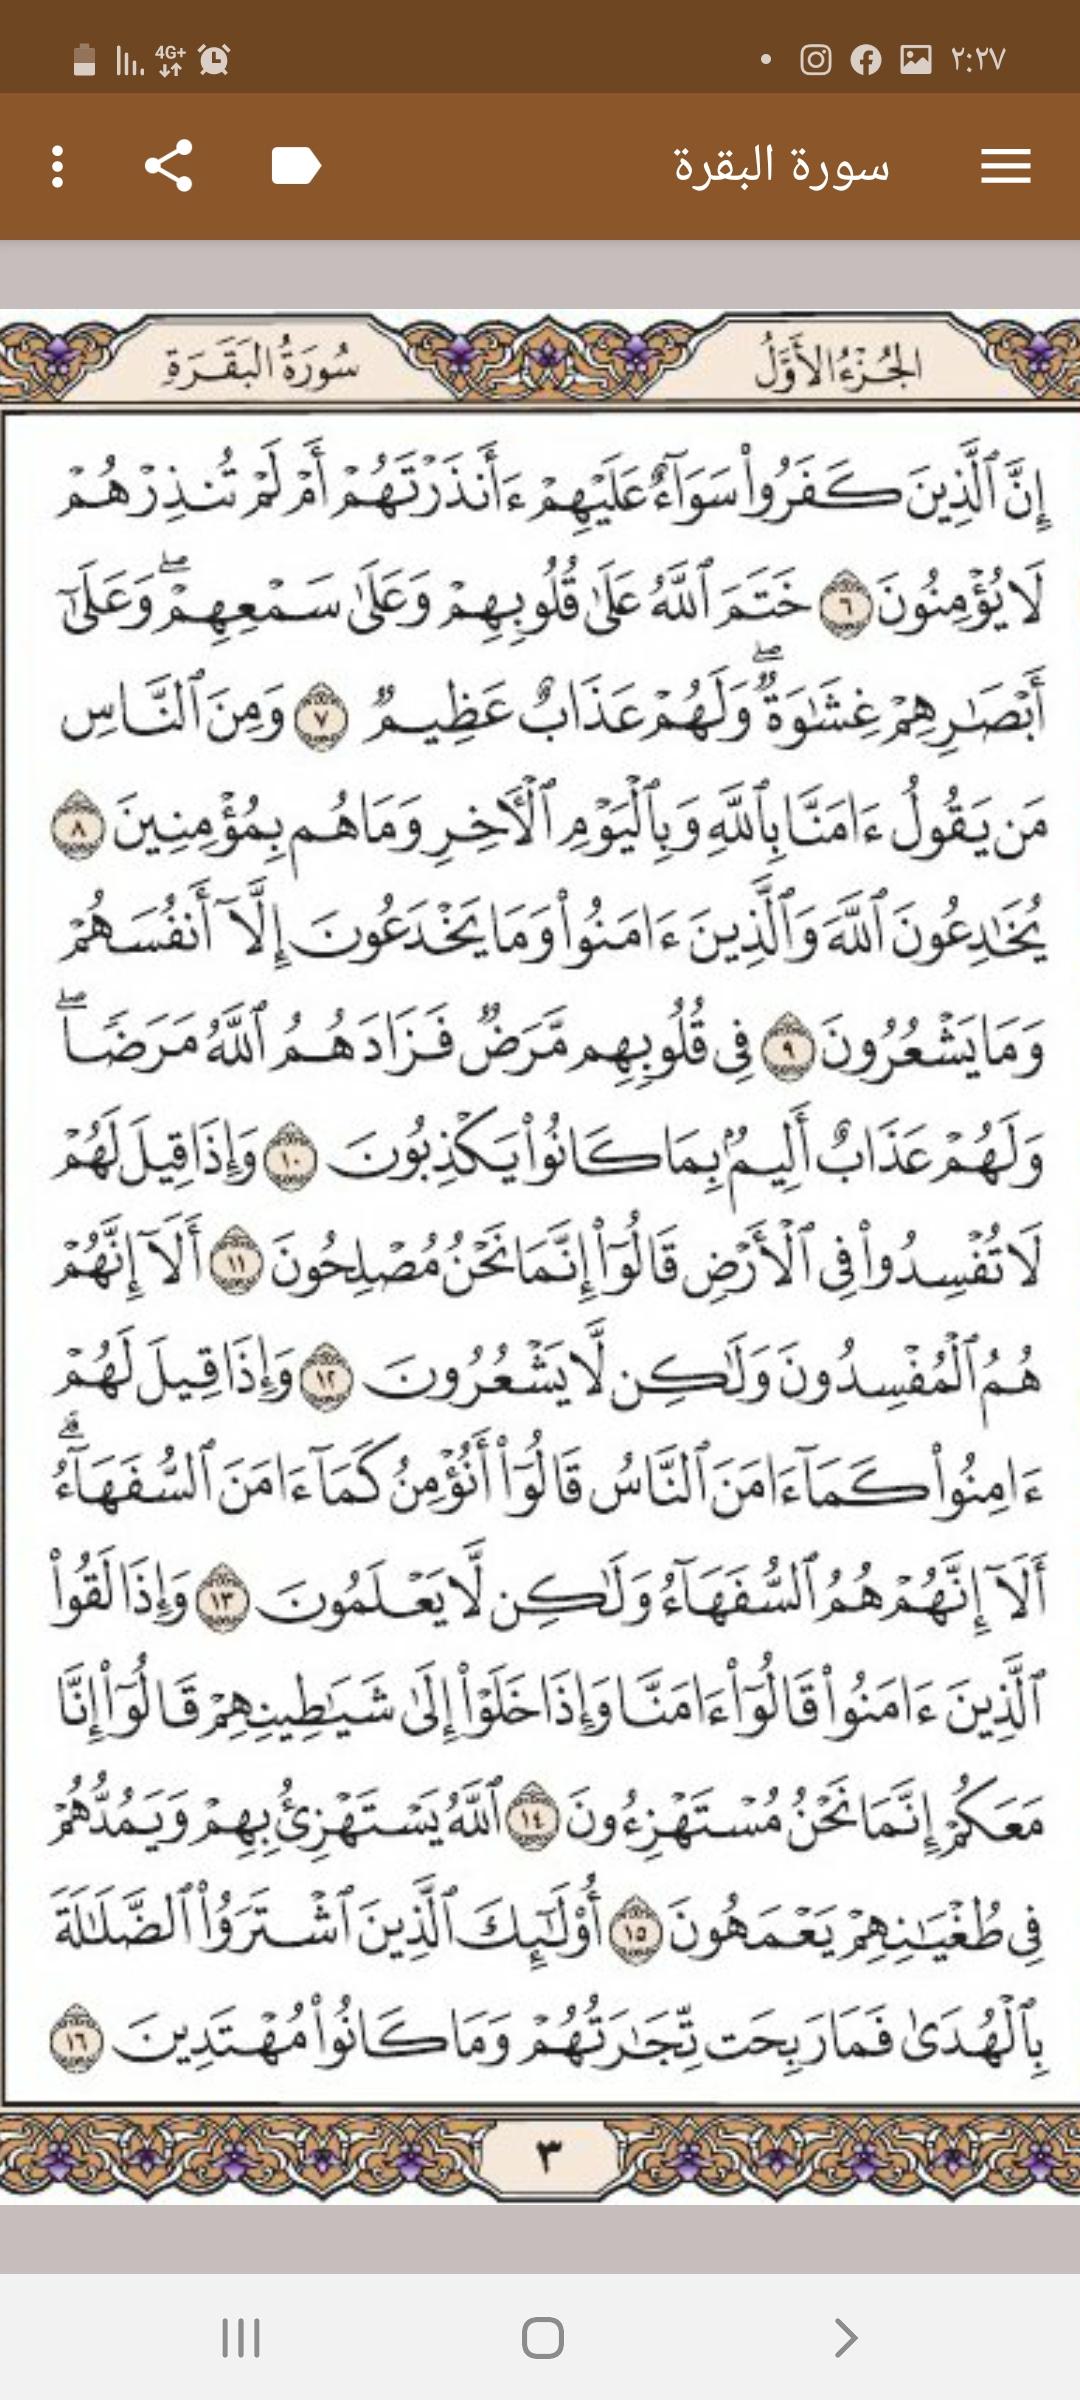 ٢:٢٧
4G+
سورة البقرة
الجُزْءُ الأَوَّلُ
سُورَةُ البَقَرَةِ
إِنَّ ٱلَّذِينَ كَفَرُوا۟ سَوَآءٌ عَلَيْهِمْ ءَأَنذَرْتَهُمْ أَمْ لَمْ تُنذِرْهُمْ
لَا يُؤْمِنُونَ ٦ خَتَمَ ٱللَّهُ عَلَىٰ قُلُوبِهِمْ وَعَلَىٰ سَمْعِهِمْ ۖ وَعَلَىٰٓ
أَبْصَـٰرِهِمْ غِشَـٰوَةٌ ۖ وَلَهُمْ عَذَابٌ عَظِيمٌ ٧ وَمِنَ ٱلنَّاسِ
مَن يَقُولُ ءَامَنَّا بِٱللَّهِ وَبِٱلْيَوْمِ ٱلْـَٔاخِرِ وَمَا هُم بِمُؤْمِنِينَ ٨
يُخَـٰدِعُونَ ٱللَّهَ وَٱلَّذِينَ ءَامَنُوا۟ وَمَا يَخْدَعُونَ إِلَّآ أَنفُسَهُمْ
وَمَا يَشْعُرُونَ ٩ فِى قُلُوبِهِم مَّرَضٌ فَزَادَهُمُ ٱللَّهُ مَرَضًا ۖ
وَلَهُمْ عَذَابٌ أَلِيمٌۢ بِمَا كَانُوا۟ يَكْذِبُونَ ١٠ وَإِذَا قِيلَ لَهُمْ
لَا تُفْسِدُوا۟ فِى ٱلْأَرْضِ قَالُوٓا۟ إِنَّمَا نَحْنُ مُصْلِحُونَ ١١ أَلَآ إِنَّهُمْ
هُمُ ٱلْمُفْسِدُونَ وَلَـٰكِن لَّا يَشْعُرُونَ ١٢ وَإِذَا قِيلَ لَهُمْ
ءَامِنُوا۟ كَمَآ ءَامَنَ ٱلنَّاسُ قَالُوٓا۟ أَنُؤْمِنُ كَمَآ ءَامَنَ ٱلسُّفَهَآءُ ۗ
أَلَآ إِنَّهُمْ هُمُ ٱلسُّفَهَآءُ وَلَـٰكِن لَّا يَعْلَمُونَ ١٣ وَإِذَا لَقُوا۟
ٱلَّذِينَ ءَامَنُوا۟ قَالُوٓا۟ ءَامَنَّا وَإِذَا خَلَوْا۟ إِلَىٰ شَيَـٰطِينِهِمْ قَالُوٓا۟ إِنَّا
مَعَكُمْ إِنَّمَا نَحْنُ مُسْتَهْزِءُونَ ١٤ ٱللَّهُ يَسْتَهْزِئُ بِهِمْ وَيَمُدُّهُمْ
فِى طُغْيَـٰنِهِمْ يَعْمَهُونَ ١٥ أُو۟لَـٰٓئِكَ ٱلَّذِينَ ٱشْتَرَوُا۟ ٱلضَّلَـٰلَةَ
بِٱلْهُدَىٰ فَمَا رَبِحَت تِّجَـٰرَتُهُمْ وَمَا كَانُوا۟ مُهْتَدِينَ ١٦
٣